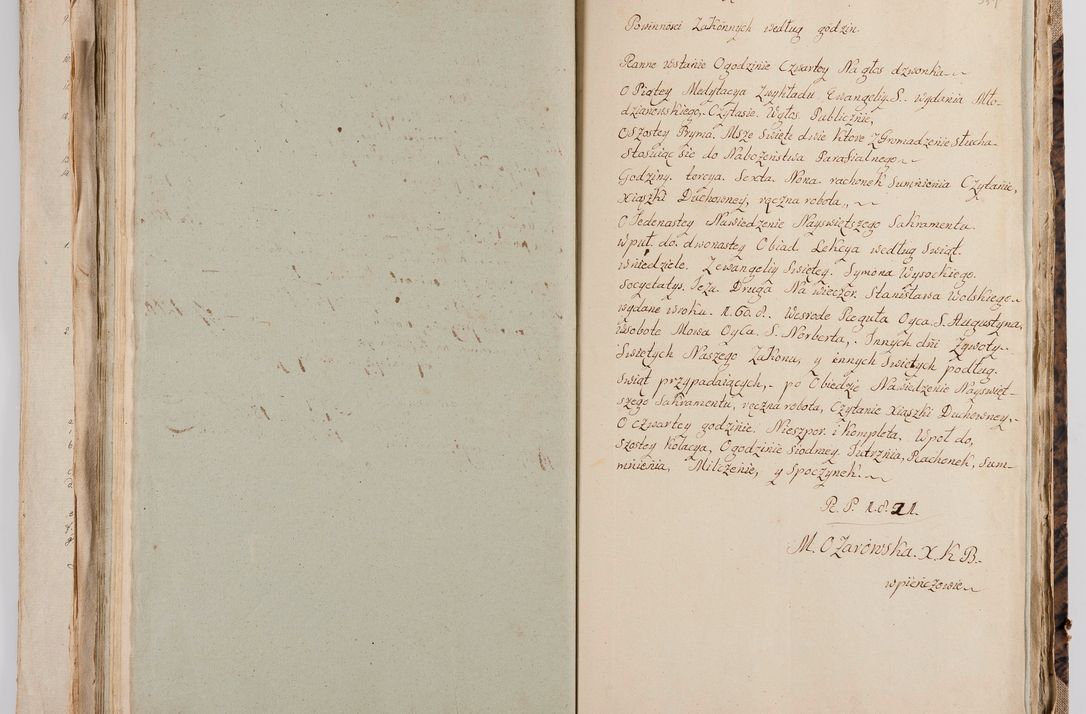 Powinności Zakonnych według godzin.
Ranne wstanie O godzinie Czwartey Na głos dzwonka
O Piątey Medytacya Zwykładu Ewangeliy S. wydania Mło-
dzianowskiego, Czytasie Wgłos Publicznie,
O Szostey Pryma, Msze Swięte dwie Ktore Zgromadzenie słucha
Stosuiąc się do Nabożeństwa Parafialnego
Godziny. tercya. Sexta. Nona. rachonek Sumnienia Czytanie,
xiąszki Duchowney, ręczna robota,
O Jedenastey Nawiedzenie Nayswiętszego Sakramentu
Wpuł. do. dwonastey Obiad Lekcya według Swiąt.
wniedziele. Zewangeliy Swiętey. Symona Wysockiego.
Socyetatys. Jezu. Druga Na wieczor. Stanisława Wolskiego
wydane wroku. 1.60.8. Wesrode Reguła Oyca. S. Augustyna,
wsobote Mowa Oyca. S. Norberta, Innych dni Zywoty
Swiętych Naszego Zakonu, y innych Swiętych podług.
Swiąt przypadaiących, po Obiedzie Nawiedzenie Nayswięt-
szego Sakramentu, ręczna robota, Czytanie xiąszki Duchowney,
O czwartey godzinie. Nieszpor. i Kompleta. Wpoł do,
Szostey Kolacya, O godzinie Siodmey. Jutrznia, Rachonek, Sum-
mnienia, Milczenie, y Spoczynek.
R. P. 1.8.21.
M. Ożarowska. X. K B.
wpieńczowie